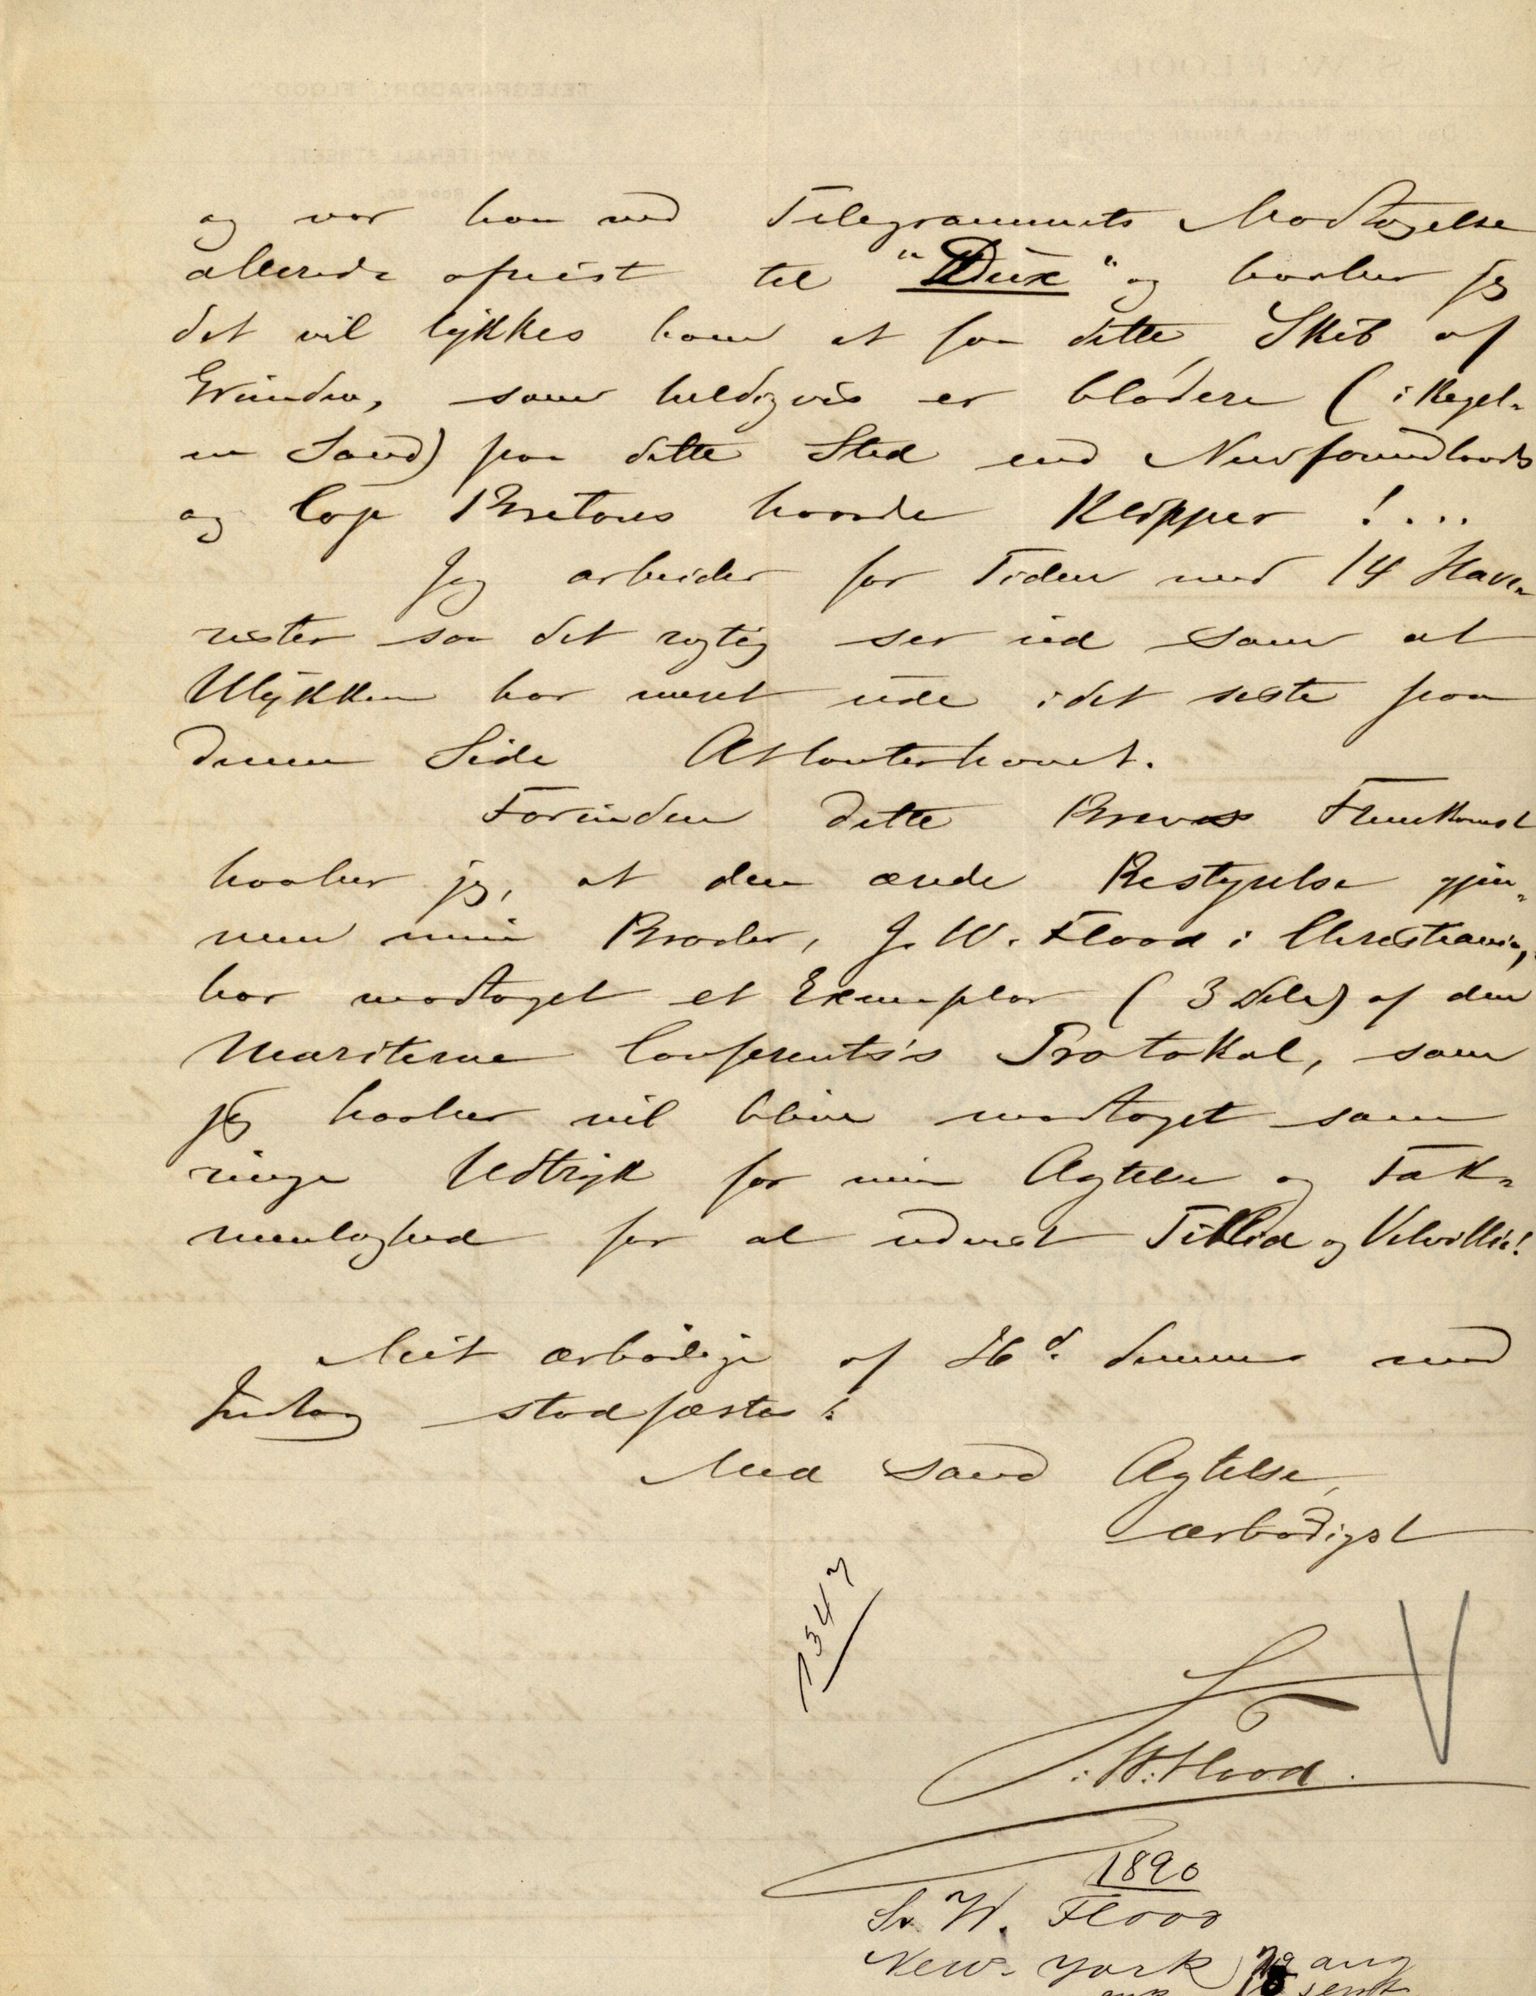 og var han ved Telegrammets Modtagelse
allerede afreist til "Dux" og haaber jeg
det vil lykkes ham at faa dette Skib af
Grunden, som heldigvis er blødere (i Regel-
en Sand) paa dette Sted end Newfoundlands
og Cap Bretons haarde Klipper!...
Jeg arbeider for Tiden med 14 Hava-
rister saa det rigtig ser ud som at
Ulykken har været ude i det siste paa
denne Side Atlanterhavet.
Forinden dette Brevs Fremkomst
haaber jeg, at den ærede Bestyrelse gjen-
nem min Broder, J. W. Flood i Christiania,
har modtaget et Exemplar (3 Dele) af den
Maritime Conferents's Protokol, som
jeg haaber vil blive modtaget som
ringe Udtryk for min Agtelse og Tak-
nemlighed for al udvist Tillid og Velvillie!
Mit ærbødige af 26d. dennes med
Indlag stadfæstes!
Med sand Agtelse,
ærbødigst
S. W. Flood.
1347
1890
S. W. Flood
New-York 29 aug
sept